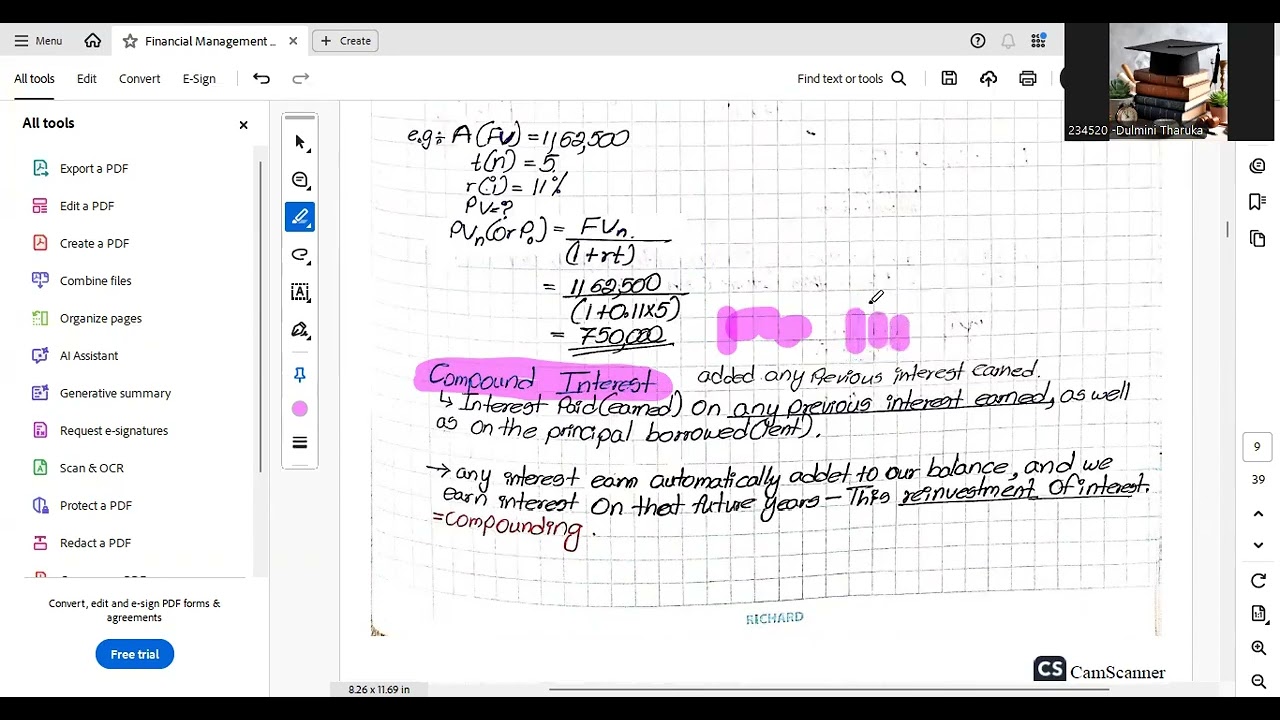 Menu
Financial Management ...
Create
All tools
Edit
Convert
E-Sign
Find text or tools
234520 -Dulmini Tharuka
All tools
Export a PDF
Edit a PDF
Create a PDF
Combine files
Organize pages
AI Assistant
Generative summary
Request e-signatures
Scan & OCR
Protect a PDF
Redact a PDF
Convert, edit and e-sign PDF forms &
agreements
Free trial
e.g:- A (FV) = 1,162,500
t(n) = 5
r(i) = 11%
PV=?
PVn(or P0) = FVn
(1+rt)
= 1162,500
(1+0.11×5)
= 750,000
Compound Interest added any Previous interest earned.
↳ Interest Paid(earned) On any previous interest earned, as well
as on the principal borrowed(lent).
→ any interest earn automatically addet to our balance, and we
earn interest On that future years - This reinvestment Of interest.
=compounding.
RICHARD
CS CamScanner
8.26 x 11.69 in
9
39